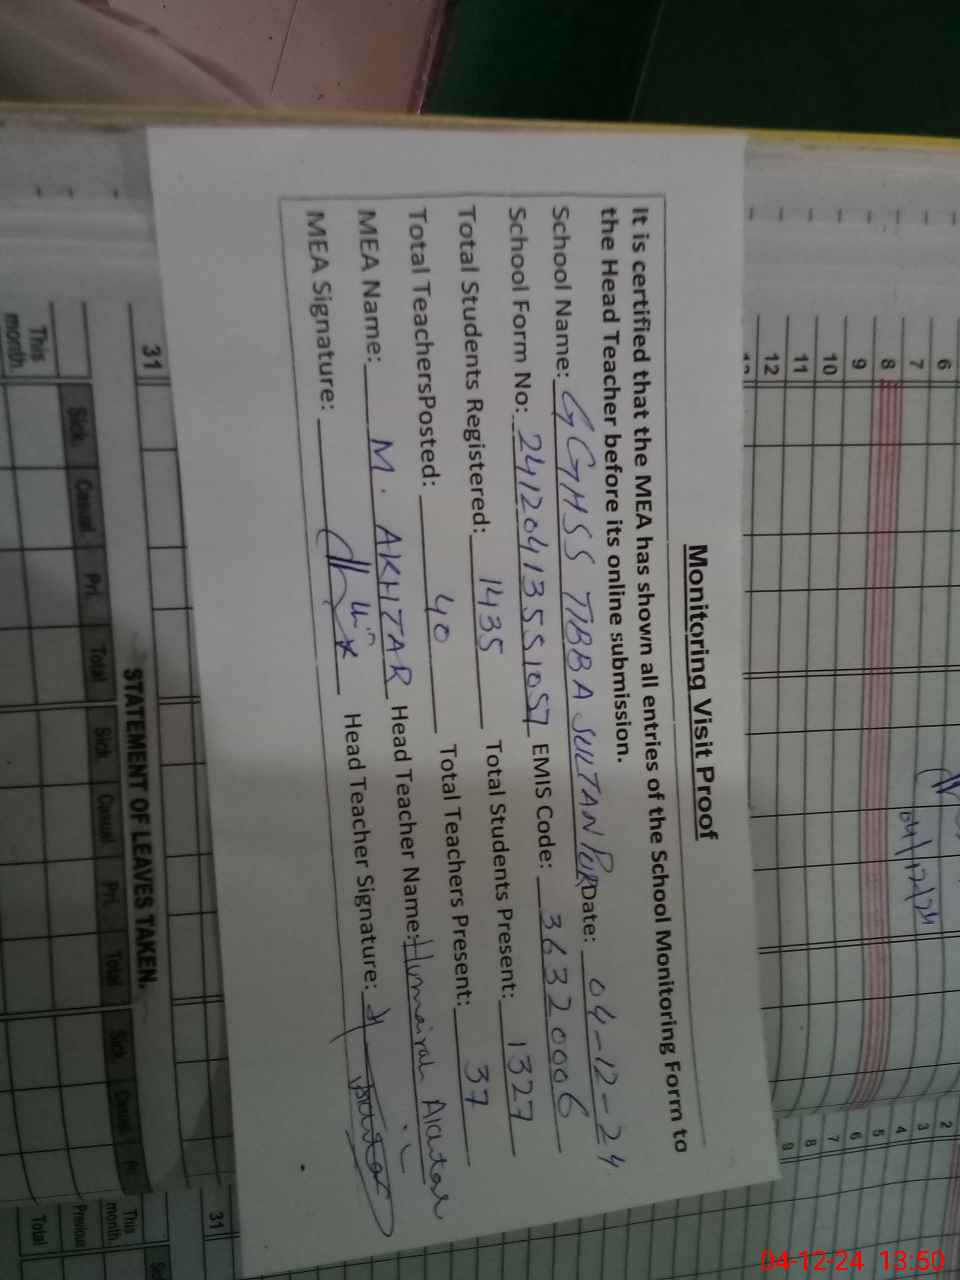 Monitoring Visit Proof
It is certified that the MEA has shown all entries of the School Monitoring Form to
the Head Teacher before its online submission.
School Name: GGHSS TIBBA SULTAN PUR Date: 04-12-24
School Form No: 241204135S1057 EMIS Code: 36320006
Total Students Registered: 1435 Total Students Present: 1327
Total TeachersPosted: 40 Total Teachers Present: 37
MEA Name: M. AKHTAR Head Teacher Name: Humairah Akhtar
MEA Signature: Head Teacher Signature:
6
7
8
9
10
11
12
04/12/24
2
3
4
5
6
7
8
9
31
STATEMENT OF LEAVES TAKEN.
Sick Casual Pri. Total Sick. Casual Pri. Total Sick Casual
This month.
31
This month
Previous
Total
04-12-24 13:50